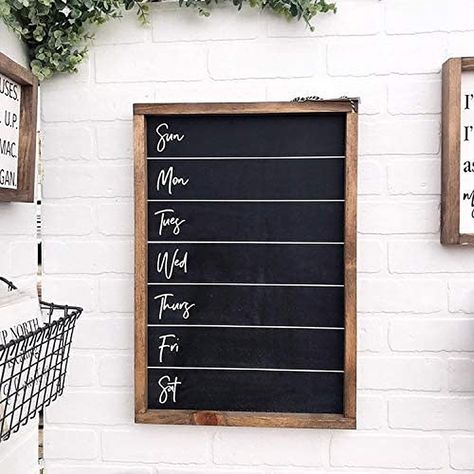 USES.
U.P.
MAC.
GAN.
Sun
Mon
Tues
Wed
Thurs
Fri
Sat
I'
I'
as
UP NORTH